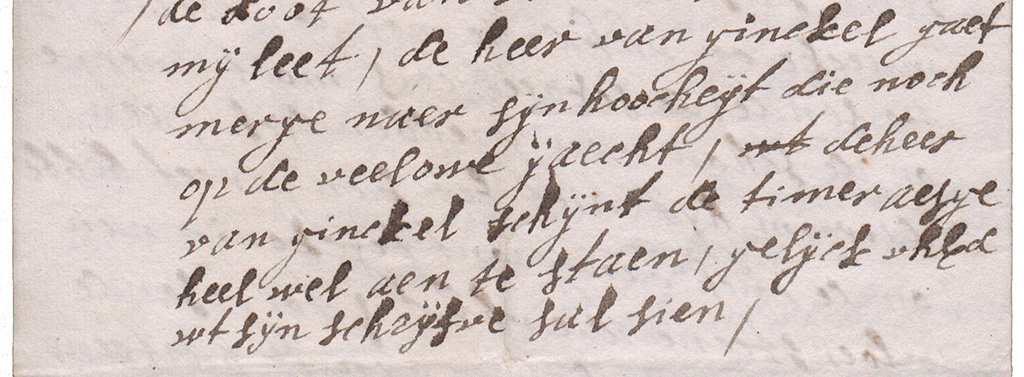 de doot van
mÿ leet / de heer van ginckel gaet
merge naer sÿn hoocheÿt die noch
op de veelowe ÿaecht / wt de heer
van ginckel schÿnt de timeraesye
heel wel aen te staen / gelÿck uhEd
wt sÿn schrÿfve sul sien /